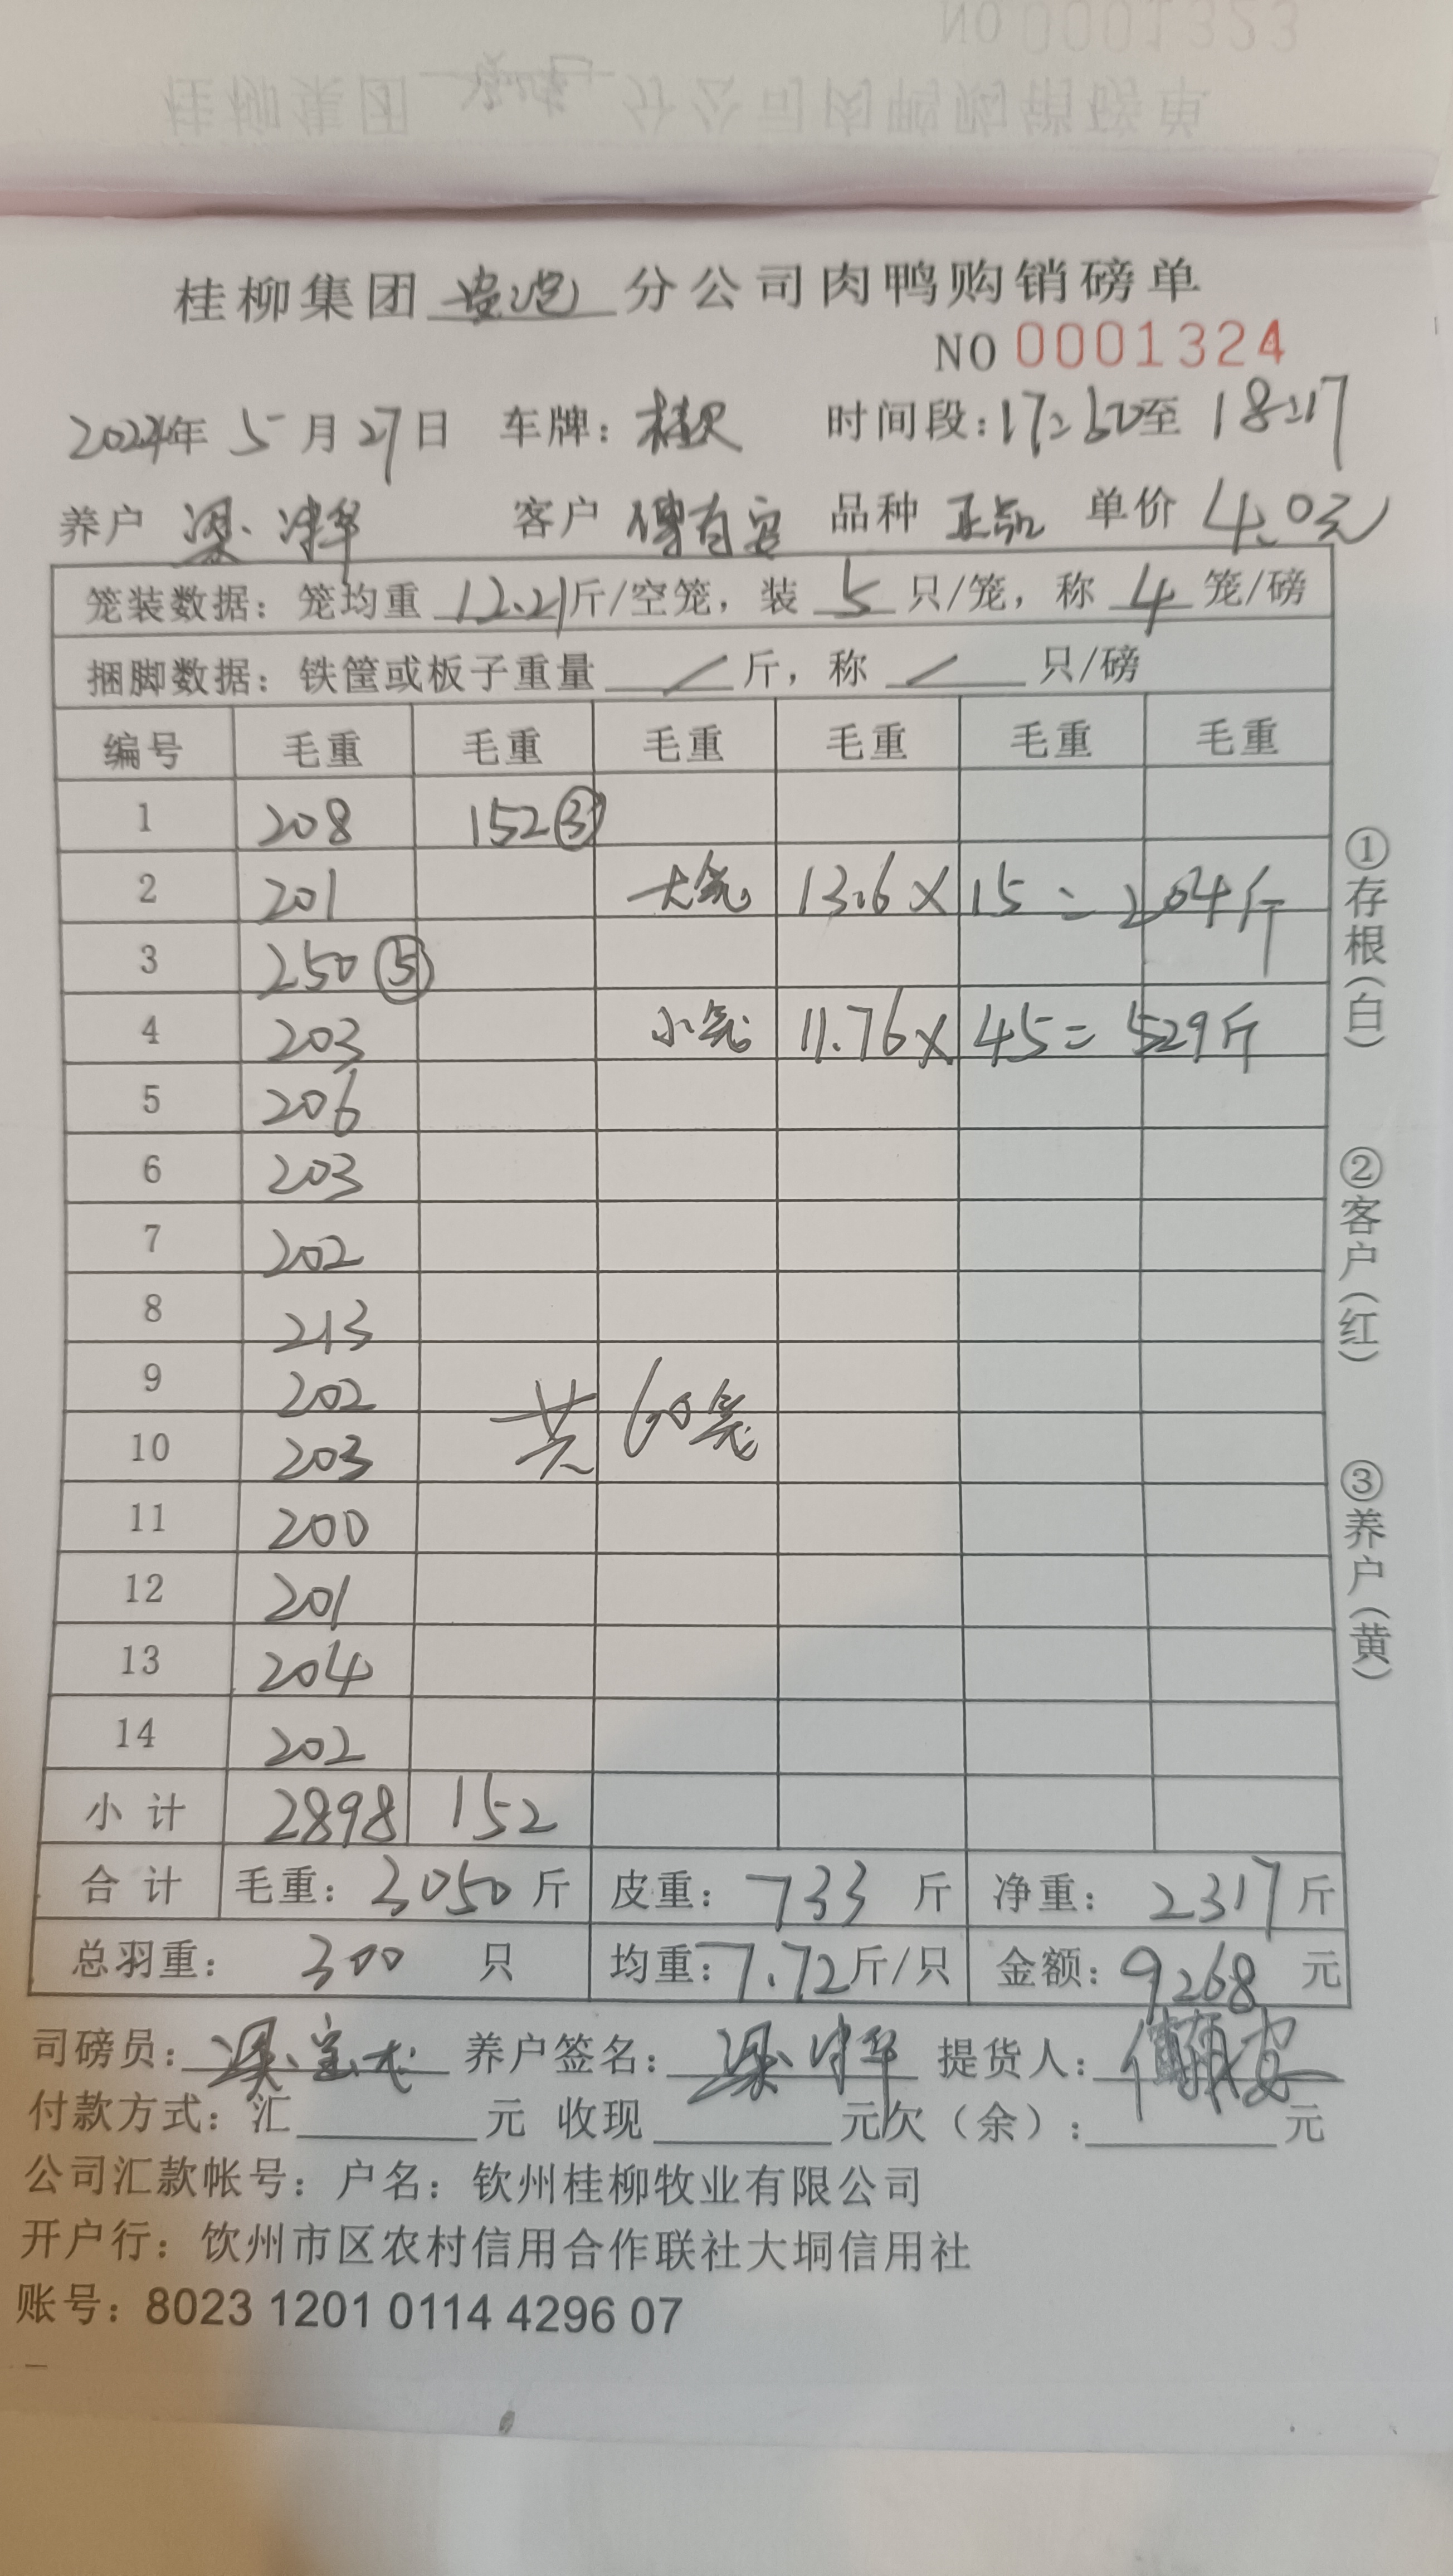 桂柳集团 分公司肉鸭购销磅单
NO 0001324
2024年 5月27日 车牌: 时间段:17:50至 18:17
养户 梁 华 客户 傅有安 品种 正品 单价 4.0元
笼装数据:笼均重 12.21斤/空笼,装 5 只/笼,称 4 笼/磅
捆脚数据:铁筐或板子重量 / 斤,称 / 只/磅
编号 毛重 毛重 毛重 毛重 毛重 毛重
1 208 152③
2 201 大笼 13.6×15=204斤
3 250⑤
4 203 小笼 11.76×45=529斤
5 206
6 203
7 202
8 213
9 202 共 60笼
10 203
11 200
12 201
13 204
14 202
小计 2898 152
合计 毛重:3050斤 皮重:733斤 净重:2317斤
总羽重:300 只 均重:7.72斤/只 金额:9268元
司磅员: 养户签名:梁 华 提货人:
付款方式:汇 元 收现 元欠(余): 元
公司汇款帐号:户名:钦州桂柳牧业有限公司
开户行:饮州市区农村信用合作联社大垌信用社
账号:8023 1201 0114 4296 07
①存根(白)
②客户(红)
③养户(黄)